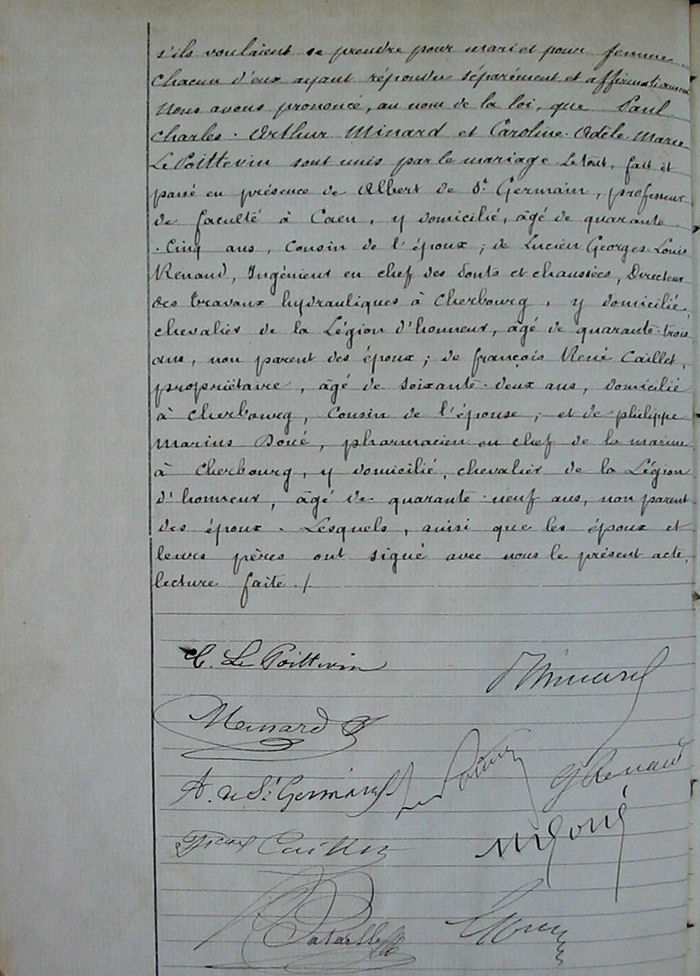 s'ils voulaient se prendre pour mari et pour femme.
Chacun d'eux ayant répondu séparément et affirmativement
Nous avons prononcé, au nom de la loi, que Paul
Charles Arthur Minard et Caroline Adèle Marie
Le Poittevin sont unis par le mariage. Le tout, fait et
passé en présence de Albert de St Germain, professeur
de faculté à Caen, y domicilié, âgé de quarante
-cinq ans, cousin de l'époux; de Lucien Georges Louis
Renaud, Ingénieur en chef des Ponts et chaussées, Directeur
des travaux hydrauliques à Cherbourg, y domicilié,
chevalier de la Légion d'honneur, âgé de quarante-trois
ans, non parent des époux; de François René Caillet,
propriétaire, âgé de soixante-deux ans, domicilié
à Cherbourg, cousin de l'épouse; et de Philippe
Marius Doué, pharmacien en chef de la marine
à Cherbourg, y domicilié, chevalier de la Légion
d'honneur, âgé de quarante-neuf ans, non parent
des époux. Lesquels, ainsi que les époux et
leurs pères ont signé avec nous le présent acte,
lecture faite./.
C. Le Poittevin
Minard
A. de St Germain
G Renaud
Caillet
M Doué